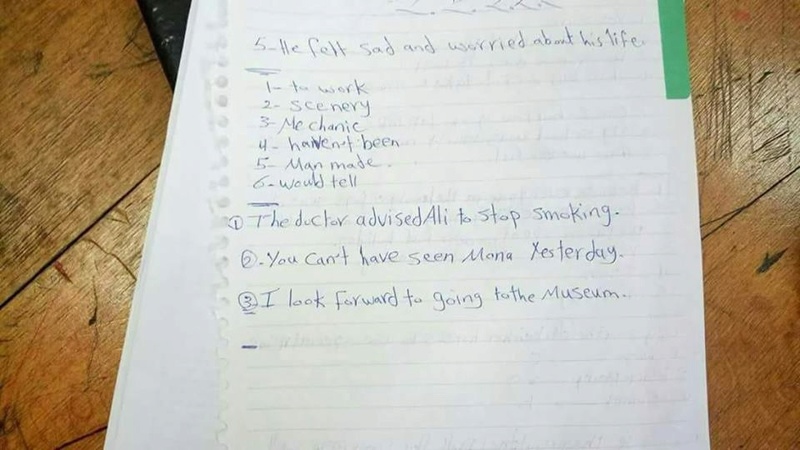 5-He felt sad and worried about his life.
1- to work
2- scenery
3- Mechanic
4- haven't been
5- Man made.
6- would tell
① The doctor advised Ali to stop smoking.
②-You can't have seen Mona Yesterday.
③ I look forward to going to the Museum.